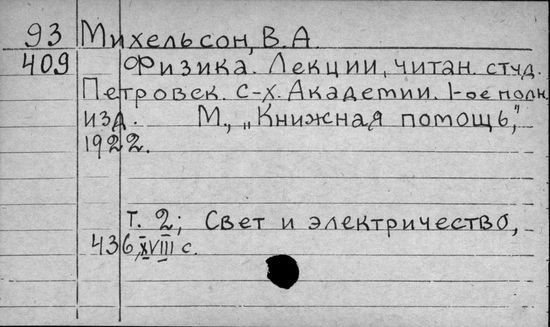 93 Михельсон, В.А.
409 Физика. Лекции, читан. студ.
Петровск. с-х. Академии. 1-ое полн.
изд. М., „Книжная помощь,"
1922.
Т. 2; Свет и электричество,
436, XVIII с.